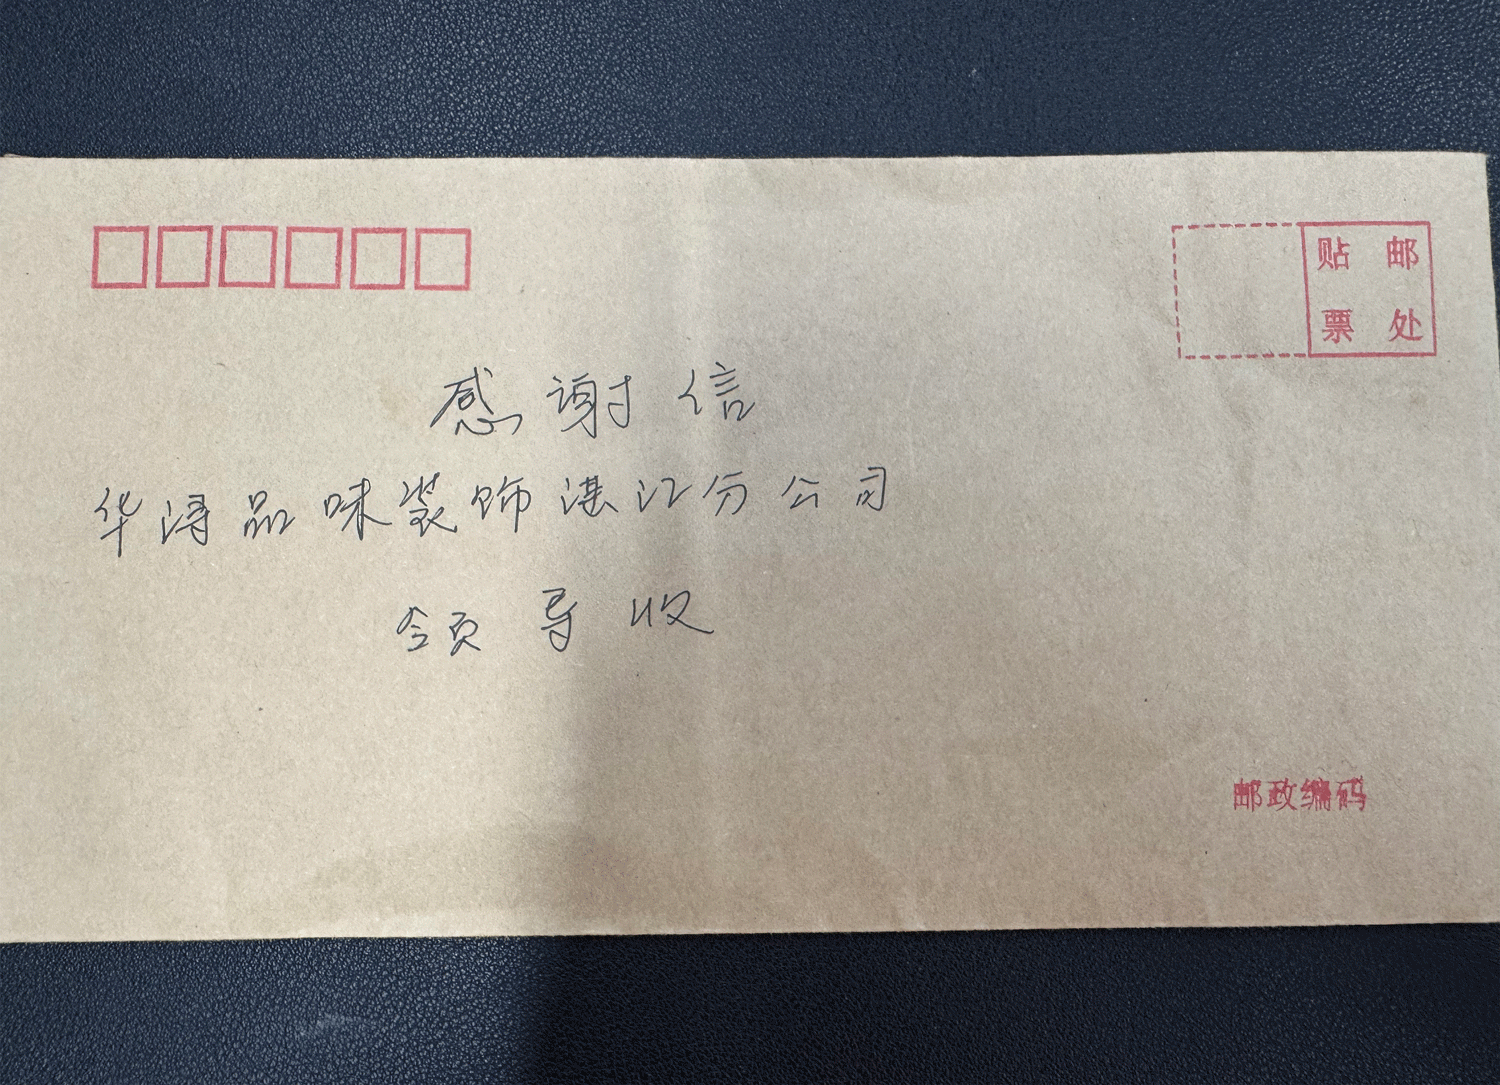 贴 邮
票 处
感谢信
华浔品味装饰湛江分公司
领导收
邮政编码